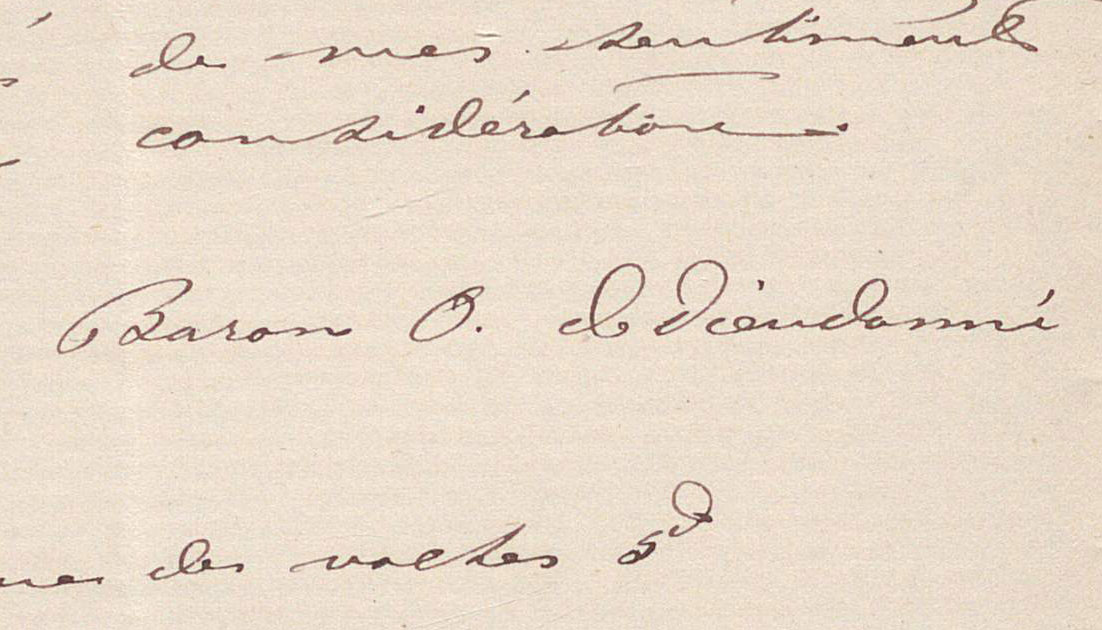 de mes sentiments
considération.
Baron O. de Dieudonné
des roches 5